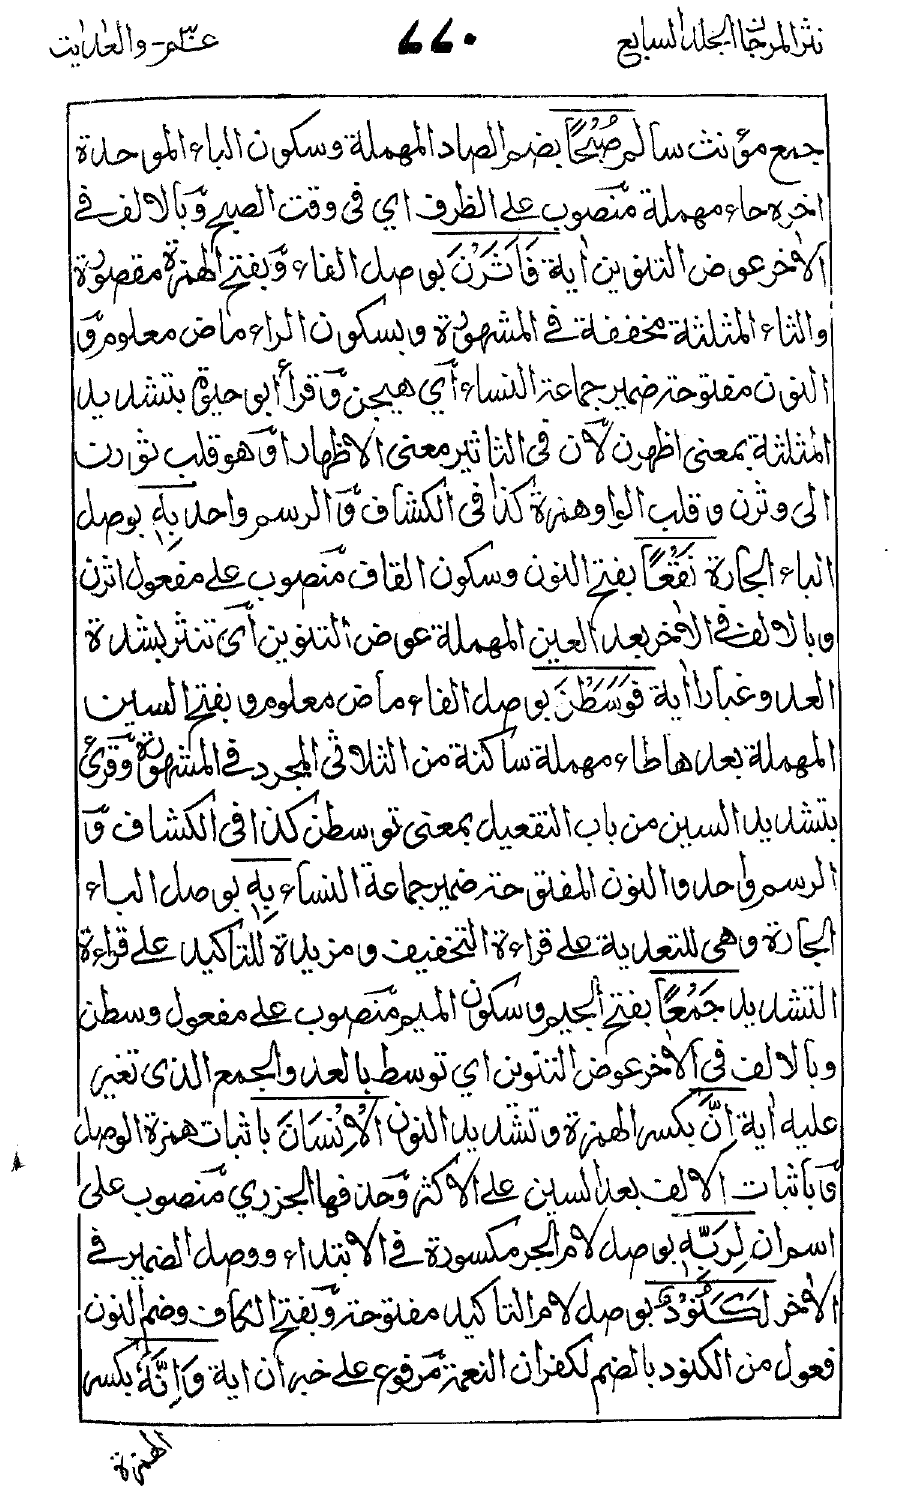 نثر المرجان الجلد السابع
٧٧٠
عم - والعاديات
جمع مؤنث سالم صُبْحًا بضم الصاد المهملة وسكون الباء الموحدة
اخره حاء مهملة منصوب على الظرف اي في وقت الصبح وبالالف في
الاخر عوض التنوين اية فَاَثَرْنَ بوصل الفاء وبفتح الهمزة مقصورة
والثاء المثلثة مخففة في المشهورة وبسكون الراء ماض معلوم و
النون مفتوحة ضمير جماعة النساء أي هيجن وقرأ ابو حيوة بتشديد
المثلثة بمعنى اظهرن لان في التاثير معنى الاظهار او هو قلب ثورت
الى وثرن وقلب الواو همزة كذا في الكشاف والرسم واحد بِهٖ بوصل
الباء الجارة نَقْعًا بفتح النون وسكون القاف منصوب على مفعول اثرن
وبالالف في الاخر بعد العين المهملة عوض التنوين أي تنثر بشدة
العدو غبارا اية فَوَسَطْنَ بوصل الفاء ماض معلوم وبفتح السين
المهملة بعدها طاء مهملة ساكنة من الثلاثي المجرد في المشهورة وقرئ
بتشديد السين من باب التفعيل بمعنى توسطن كذا في الكشاف و
الرسم واحد والنون المفتوحة ضمير جماعة النساء بِهٖ بوصل الباء
الجارة وهي للتعدية على قراءة التخفيف ومزيدة للتاكيد على قراءة
التشديد جَمْعًا بفتح الجيم وسكون الميم منصوب على مفعول وسطن
وبالالف في الاخر عوض التنوين اي توسط بالعدو الجمع الذى تغير
عليه اية اِنَّ بكسر الهمزة وتشديد النون الْاِنْسَانَ باثبات همزة الوصل
وباثبات الالف بعد السين على الاكثر وحذفها الجزري منصوب على
اسم ان لِرَبِّهٖ بوصل لام الجر مكسورة في الابتداء ووصل الضمير في
الاخر لَكَنُوْدٌ بوصل لام التاكيد مفتوحة وبفتح الكاف وضم النون
فعول من الكنود بالضم لكفران النعمة مرفوع على خبر ان اية وَاِنَّهٗ بكسر
الهمزة